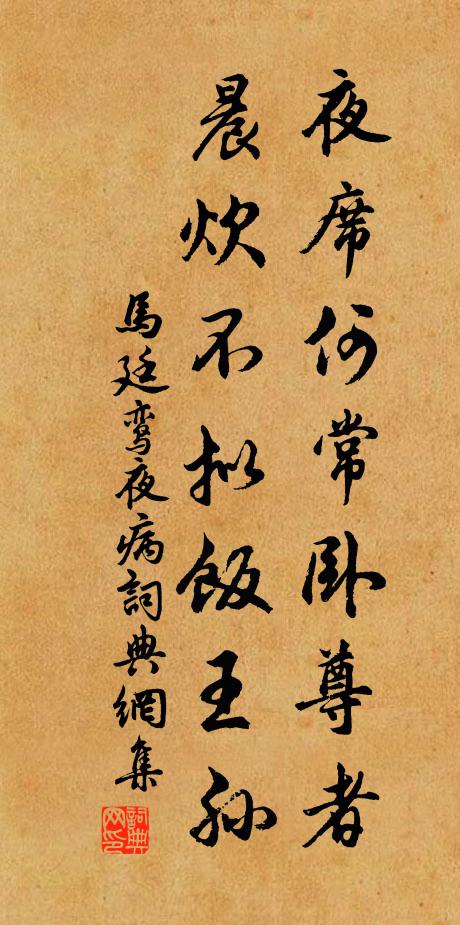 夜席何常卧尊者
晨炊不拟飯王孙
馬廷鸾夜病詞典網集
詞典网印